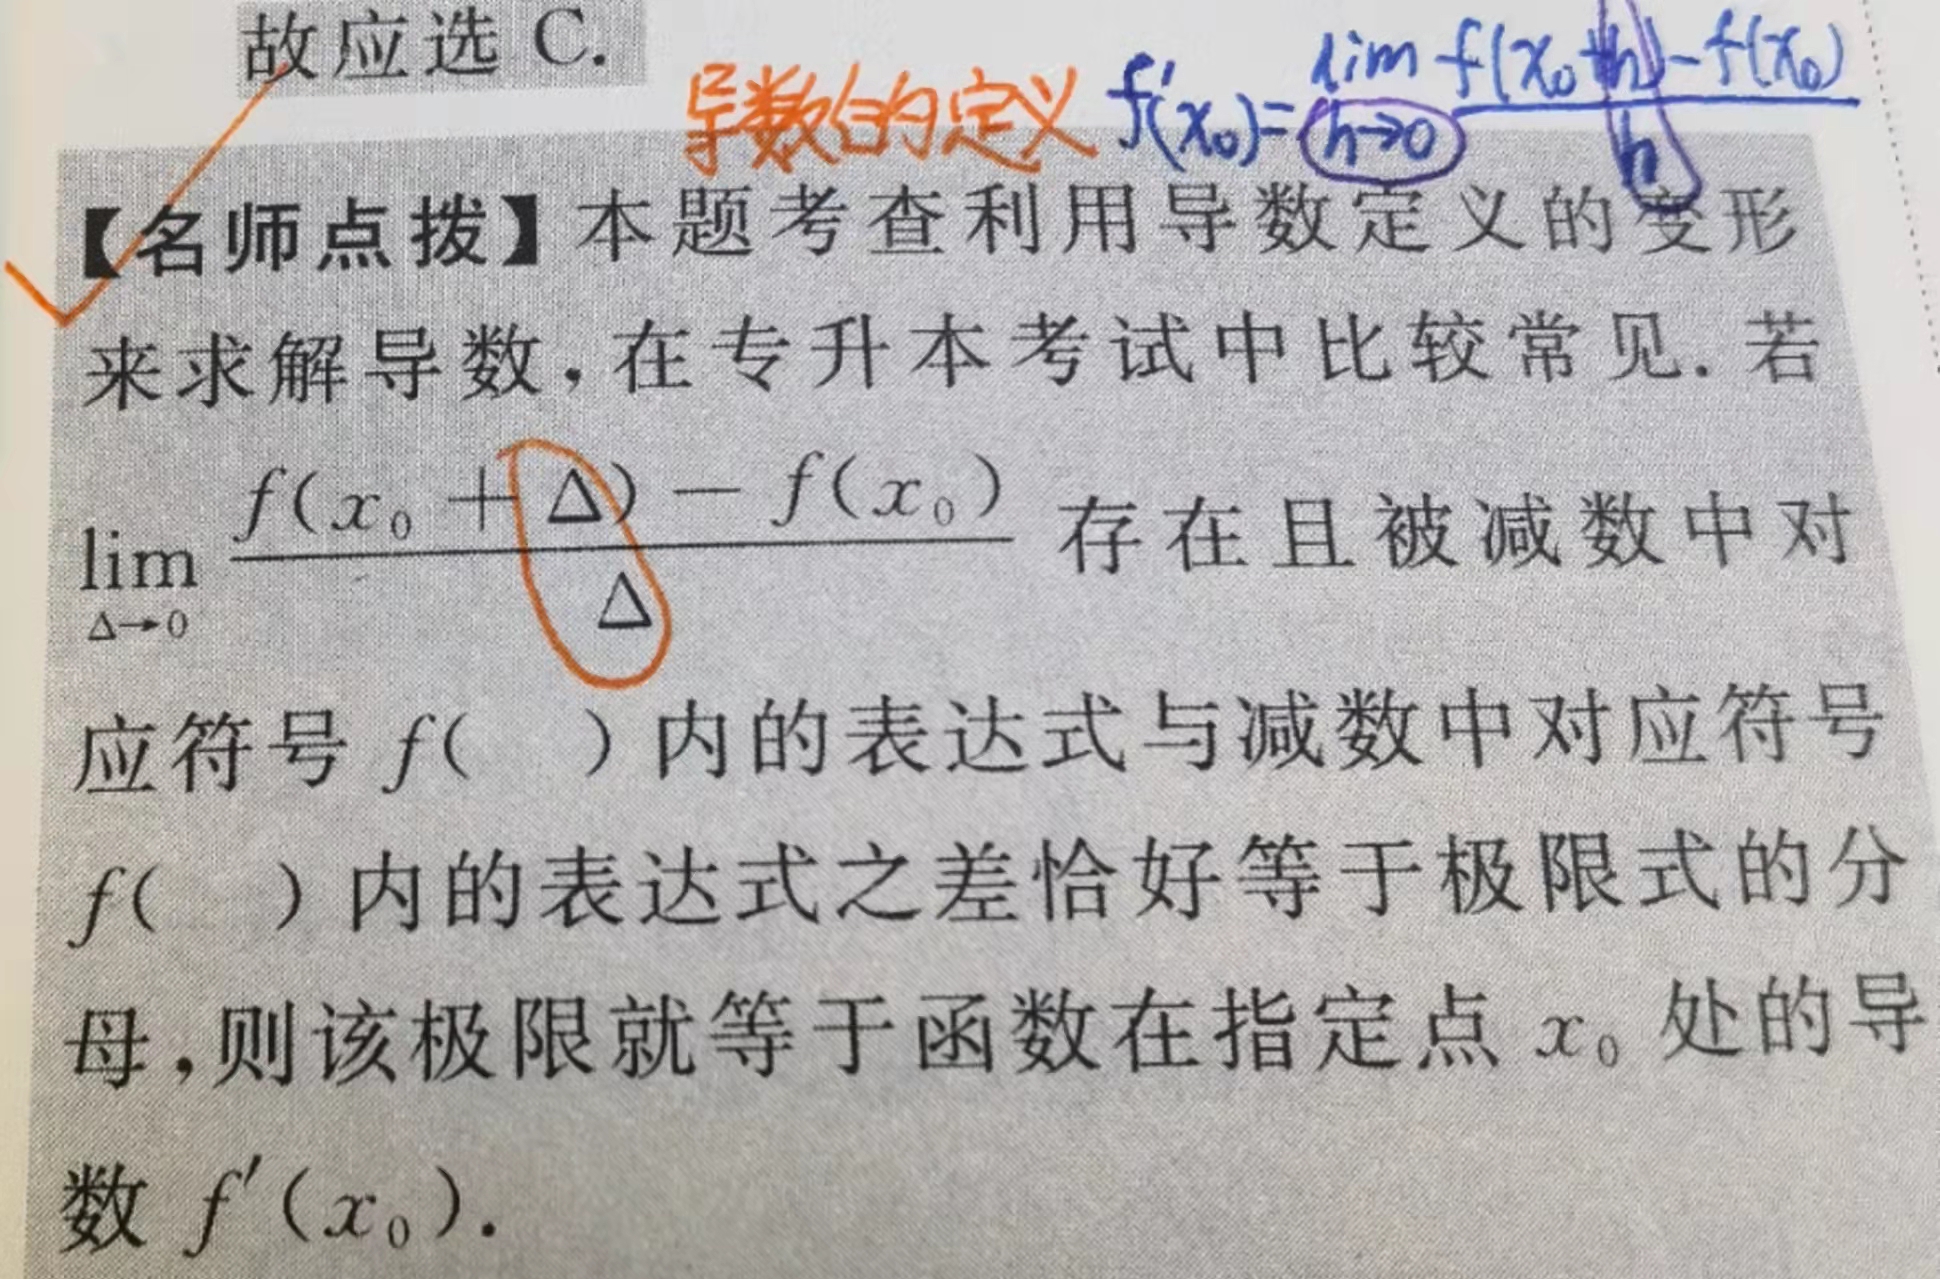 故应选 C.
导数的定义 f′(x₀)= lim h→0 f(x₀+h)-f(x₀) / h
【名师点拨】本题考查利用导数定义的变形
来求解导数,在专升本考试中比较常见. 若
lim Δ→0 f(x₀+Δ)-f(x₀) / Δ 存在且被减数中对
应符号 f( ) 内的表达式与减数中对应符号
f( ) 内的表达式之差恰好等于极限式的分
母,则该极限就等于函数在指定点 x₀ 处的导
数 f′(x₀).